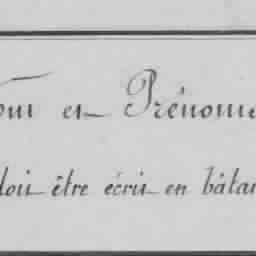 om et Prénoms
doit être écrit en bâtar